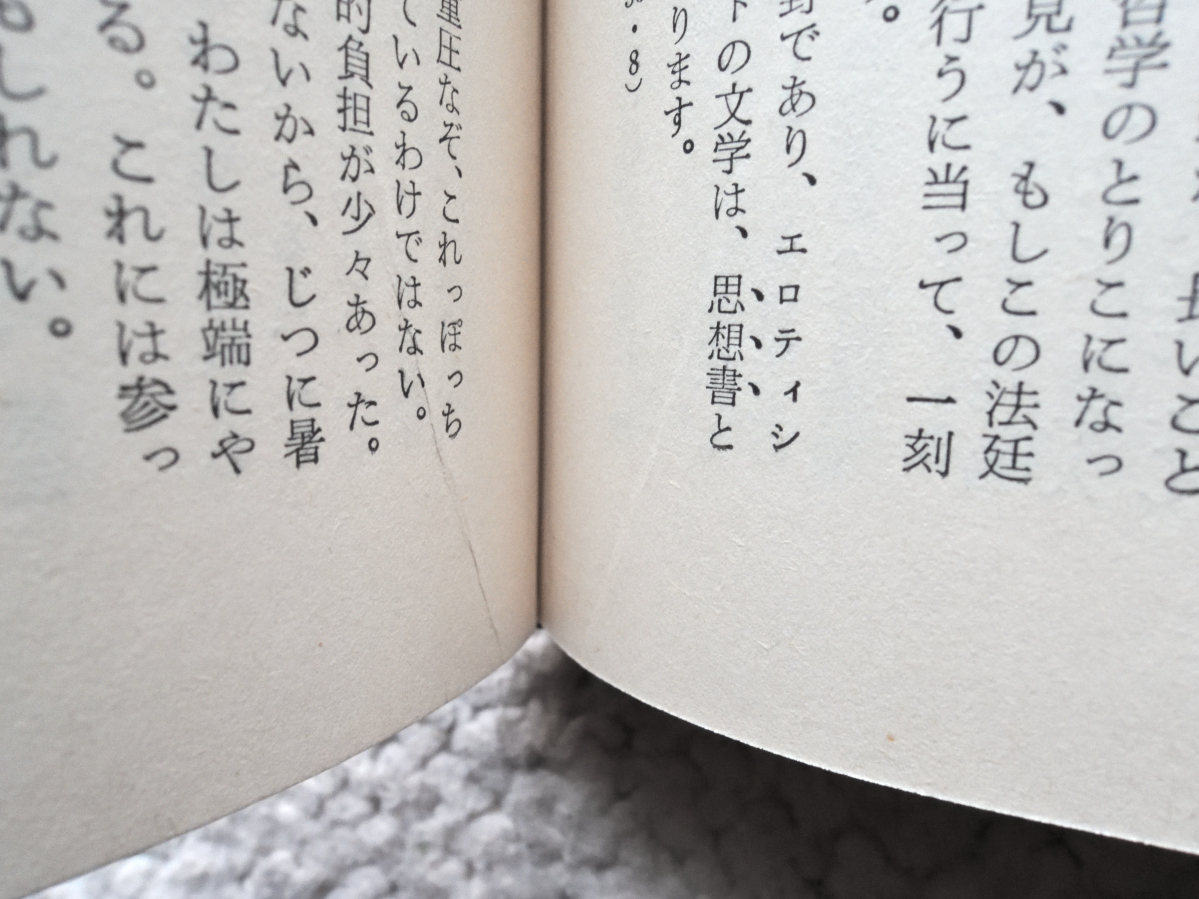 長いこと
習学のとりこになっ
見が、もしこの法廷
行うに当って、一刻
。
野であり、エロティシ
トの文学は、思想書と
ります。
・8)
重圧なぞ、これっぽっち
ているわけではない。
的負担が少々あった。
ないから、じつに暑
わたしは極端にや
る。これには参っ
もしれない。